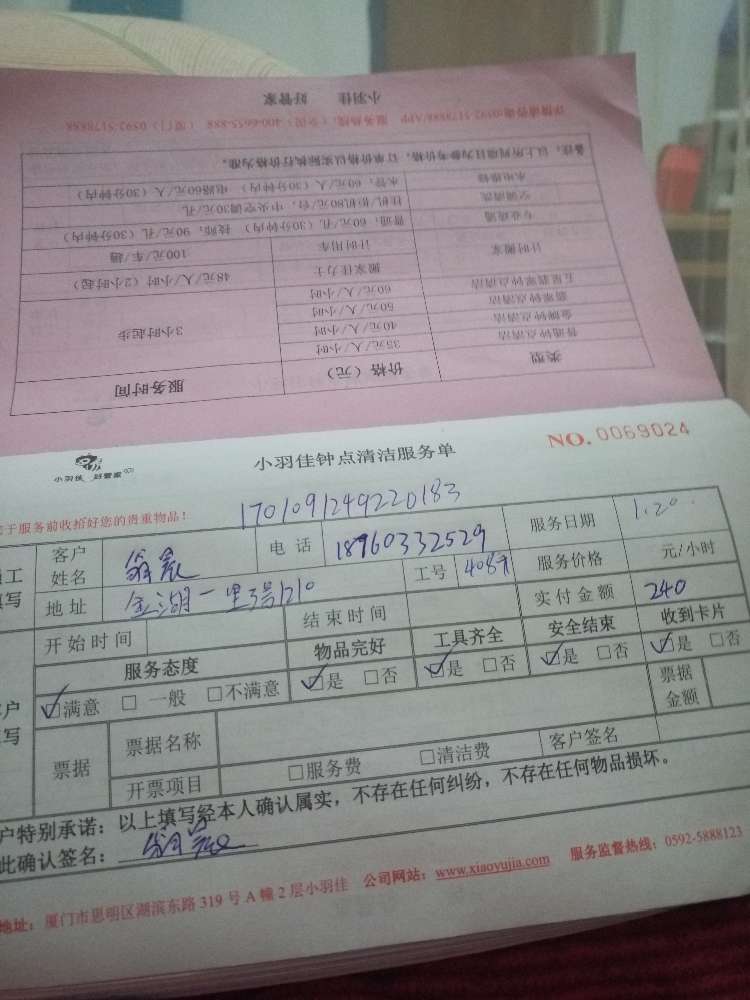 小羽佳 好管家
详情咨询:0592-5178888/APP 服务热线:(全国)400-6655-888 (厦门)0592-5178888
类型 价格(元) 服务时间
普通钟点清洁 35元/人/小时 3小时起步
金牌钟点清洁 40元/人/小时
翡翠钟点清洁 50元/人/小时
五星翡翠钟点清洁 60元/人/小时
计时搬家 搬家佳力士 48元/人/小时(2小时起)
计时用车 100元/车/趟
专业疏通 普通:60元/孔(30分钟内) 技师:90元/孔(30分钟内)
空调清洗 挂机/柜机80元/台,中央空调30元/孔
水电维修 水管:60元/人(30分钟内) 电路60元/人(30分钟内)
备注:以上所列项目为参考价格,订单价格以实际执行价格为准。
小羽佳 好管家
小羽佳钟点清洁服务单
NO.0069024
于服务前收拾好您的贵重物品!
1701091249220183
工 填写 客户姓名 翁 电话 18960332529 服务日期 1.20
地址 金湖一里 工号 服务价格 元/小时
开始时间 结束时间 实付金额 240
服务态度 物品完好 工具齐全 安全结束 收到卡片
户 填写 ☑满意 □一般 □不满意 ☑是 □否 ☑是 □否 ☑是 □否 ☑是 □否
票据 票据名称 票据金额
开票项目 □服务费 □清洁费 客户签名
户特别承诺:以上填写经本人确认属实,不存在任何纠纷,不存在任何物品损坏。
此确认签名:
地址:厦门市思明区湖滨东路319号A幢2层小羽佳 公司网站:www.xiaoyujia.com 服务监督热线:0592-5888123